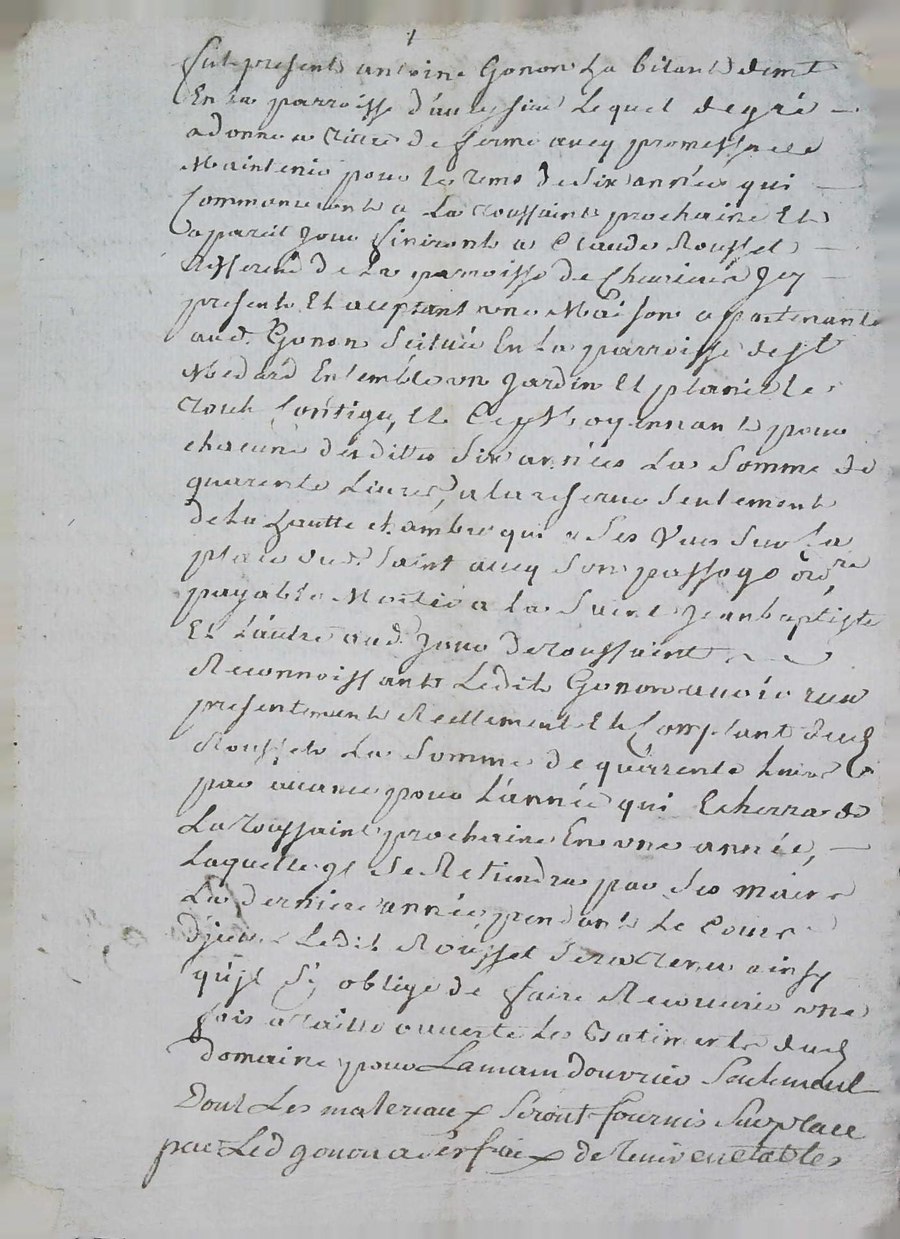 fut present antoine Gonon habitant demt
En la parroisse d'aveysieu Lequel de gré
a donné a titre de ferme avec promesse de
Maintenir pour le tems de Six années qui
Commenceront a La toussaint prochaine Et
a pareil jour finiront a Claude Rousset
de la parroisse de Chevrieres jcy
present Et aceptant une Maison apartenante
aud. Gonon Scituée En La parroisse de St
Medard Ensemble un jardin Et
Contigu, Et Ce Moyennant pour
chacune desdittes Six années La Somme de
quarente Livres, a la reserve Seulement
de la hautte chambre qui a Ses Vues Sur la
place dud. Saint avec Son passage ordre,
payable Moitié a la Saint jean baptiste
Et L'autre aud. jour de toussaint
Reconnoissant Ledit Gonon avoir reçu
presentement Reellement Et Comptant dud
Rousset La Somme de quarrente Livres
par avance pour L'année qui Echerra de
La toussaint prochaine En une année,
Laquelle jl Se Retiendra par Ses mains
La derniere année pendant Le Cours
d'jcelle Ledit Rousset Sera tenu ainsy
qu'jl S'y oblige de faire Recouvrir une
fois a taille ouverte Les Batiments dud
domaine pour La main d'ouvrier Seulement
Dont Les materiaux Seront fournis Sur place
par Led gonon a Ses frais de tenir en etat les